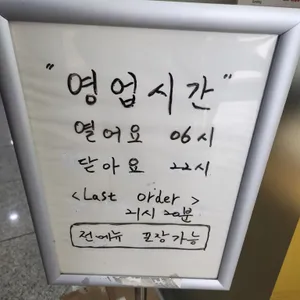 "영업시간"
열어요 06시
닫아요 22시
<Last order>
21시 20분
전메뉴 포장가능